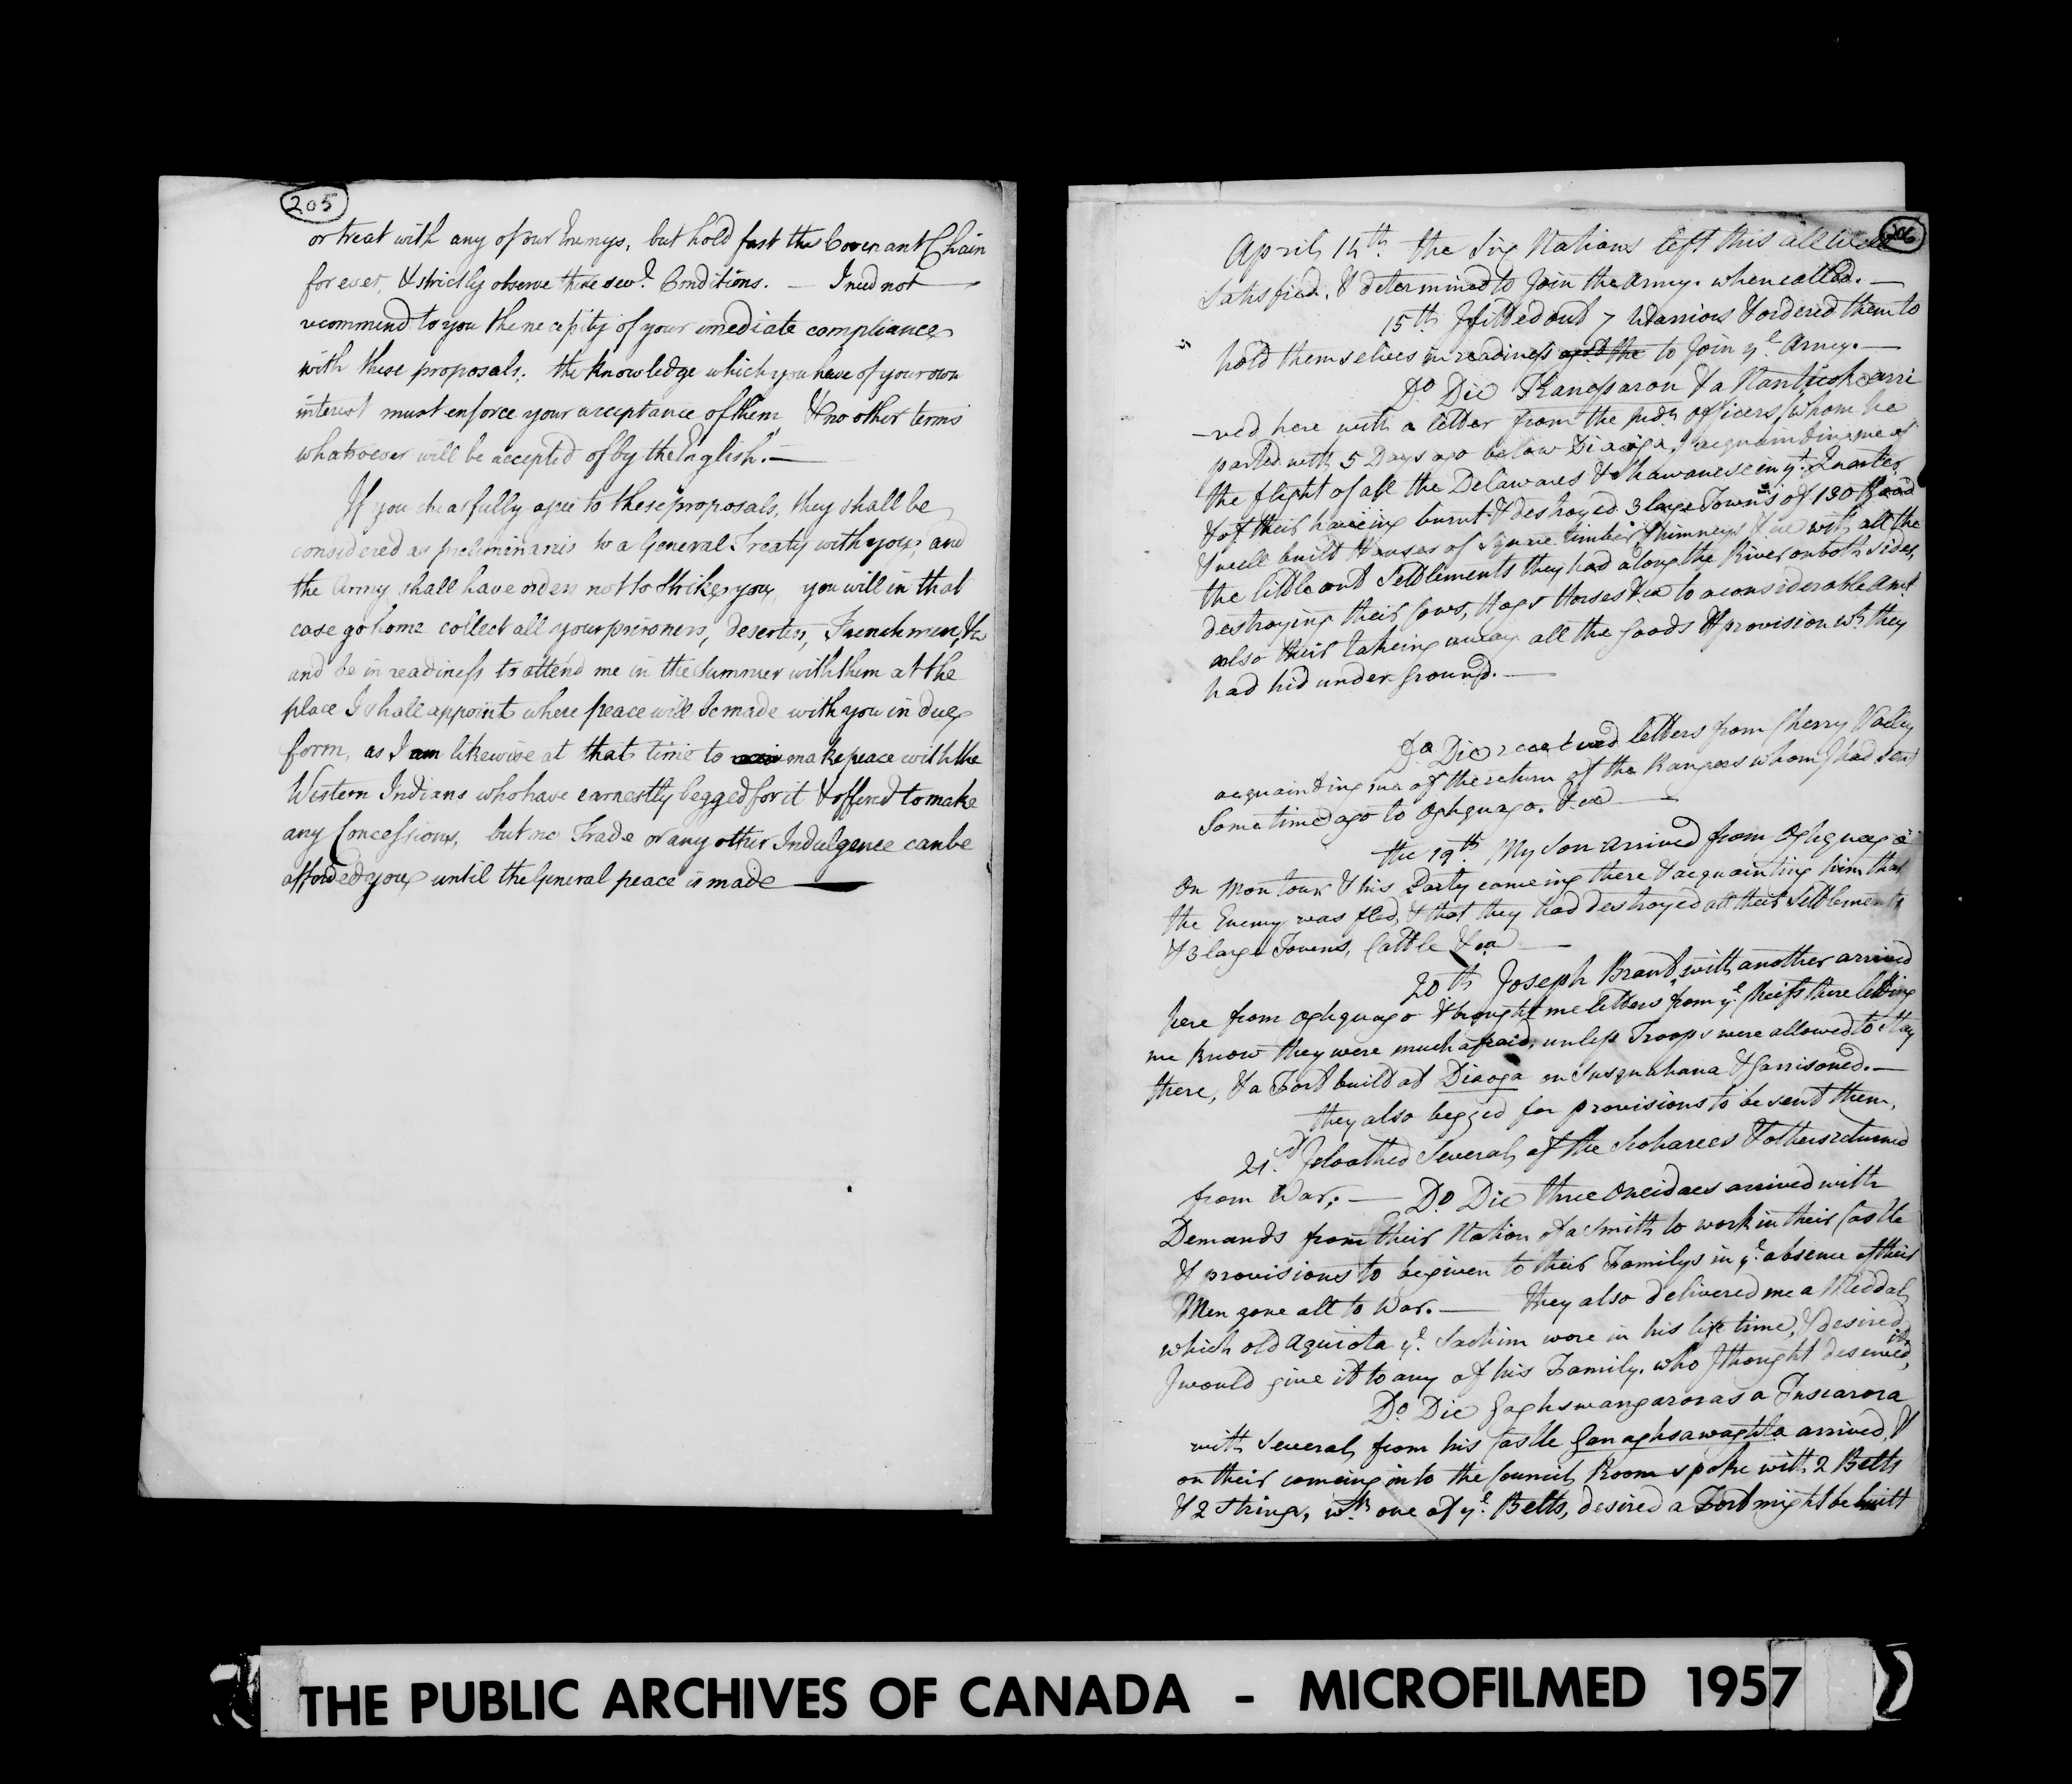 205
or treat with any of our Enemys, but hold fast the Covenant Chain
for ever, & strictly observe these sevl. Conditions. — I need not —
recommend to you the necessity of your imediate compliance
with these proposals; the knowledge which you have of your own
interest must enforce your acceptance of them, & no other terms
whatsoever will be accepted of by the English. —
If you chearfully agree to these proposals, they shall be
considered as preliminaries to a General Treaty with you, and
the Army shall have orders not to strike you, you will in that
case go home collect all your prisoners, deserters, Frenchmen, &c
and be in readiness to attend me in the Summer with them at the
place I shall appoint where peace will be made with you in due
form, as I am likewise at that time to make peace with the
Western Indians who have earnestly begged for it & offered to make
any Concessions, but no Trade or any other Indulgence can be
afforded you until the General peace is made —
206
April 14th. the Six Nations left this all well
Satisfied, & determined to Join the Army. when called. —
15th I fitted out 7 Warriors & ordered them to
hold themselves in readiness agst. the to Join ye. Army. —
Do. Die & a Nanticok arri
-ved here with a letter from the Indn. officers (whom he
parted with 5 Days ago below Diaoga) acquainting me of
the flight of all the Delawares & Shawanese in yt. Quarter
& of their haveing burnt & destroyed 3 large Towns of 130 Good
& well built Houses of Square timber Chimneys &ca with all the
the little out Settlements they had along the River on both sides,
destroying their Cows, Hogs Horses &ca to a considerable amt.
also their takeing away all the Goods & provision wh. they
had hid under Ground. —
Do. Die received letters from Cherry Valley
acquainting me of the return of the Rangers whom I had sent
Some time ago to Oghquago. &ca —
the 19th. My Son arrived from Oghquago
On Montour & his Party comeing there & acquainting him that
the Enemy was fled, & that they had destroyed all their Settlements
& 3 large Towns, Cattle &ca —
20th Joseph Brant with another arrived
here from Oghquago & brought me letters from ye. Cheifs there letting
me know they were much afraid, unless Troops were allowed to Stay
there, & a Fort built at Diaoga on Susquahana & Garrisoned. —
they also begged for provisions to be sent them,
21st. I cloathed Several of the Scoharees & others returned
from War; — Do. Die three Oneidaes arrived with
Demands from their Nation of a Smith to work in their Castle
& provisions to be given to their Familys in ye. absence of their
Men gone all to War. — they also delivered me a Meddal
which old Aguiota ye. Sachim wore in his life time, & desired
I would give it to any of his Family, who I thought deserved it,
Do. Die Gaghswangaroras a Tuscarora
with Several from his Castle Ganaghsawaghta arrived, &
on their comeing into the Council Room spoke with 2 Belts
& 2 Strings, wth. one of ye. Belts, desired a Fort might be built
THE PUBLIC ARCHIVES OF CANADA - MICROFILMED 1957